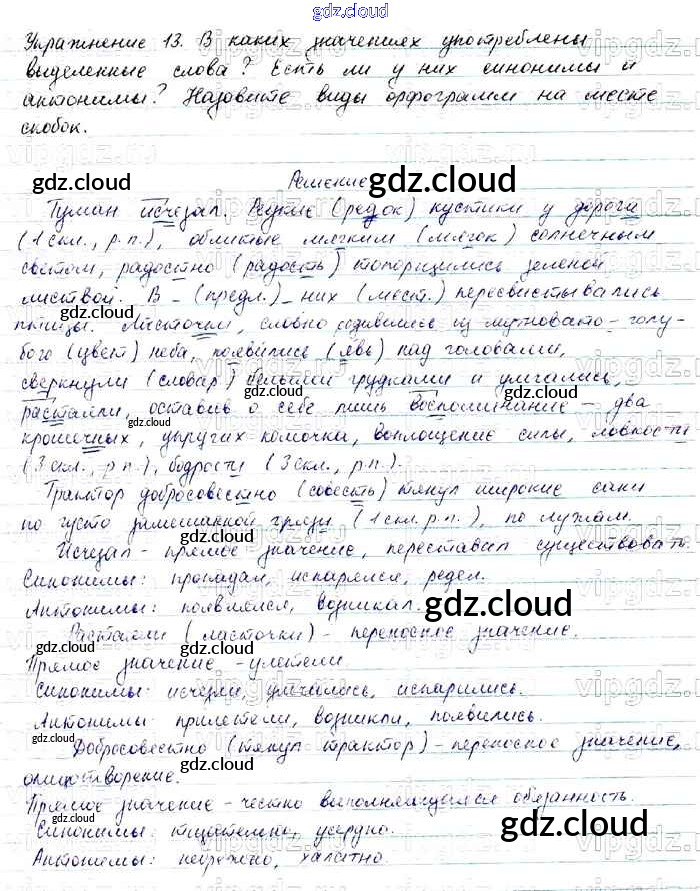 gdz.cloud
Упражнение 13. В каких значениях употреблены
выделенные слова? Есть ли у них синонимы и
антонимы? Назовите виды орфограмм на месте
скобок.
Решение
Туман исчезал. Редкие (редок) кустики у дороги
(1 скл., р.п.), облитые мягким (мягок) солнечным
светом, радостно (радость) топорщились зеленой
листвой. В _ (предл.)_ них (мест.) пересвистывались
птицы. Ласточки, словно родившиеся из мутновато-голу-
бого (цвет) неба, появились (явь) над головами,
сверкнули (словар) белыми грудками и умчались,
растаяли, оставив о себе лишь воспоминание - два
крошечных, упругих комочка, воплощение силы, ловкости
(3 скл., р п.), бодрости (3 скл., р.п.).
Трактор добросовестно (совесть) тянул широкие сани
по густо замешанной грязи (1 скл. р.п.), по лужам.
Исчезал - прямое значение, переставал существовать.
Синонимы: пропадал, испарялся, редел.
Антонимы: появлялся, возникал.
Растаяли (ласточки) - переносное значение.
Прямое значение - улетели
Синонимы: исчезли, умчались, испарились.
Антонимы: прилетели, возникли, появились.
Добросовестно (тянул трактор) - переносное значение,
олицетворение.
Прямое значение - честно выполняющийся обязанность.
Синонимы: тщательно, усердно.
Антонимы: небрежно, халатно.